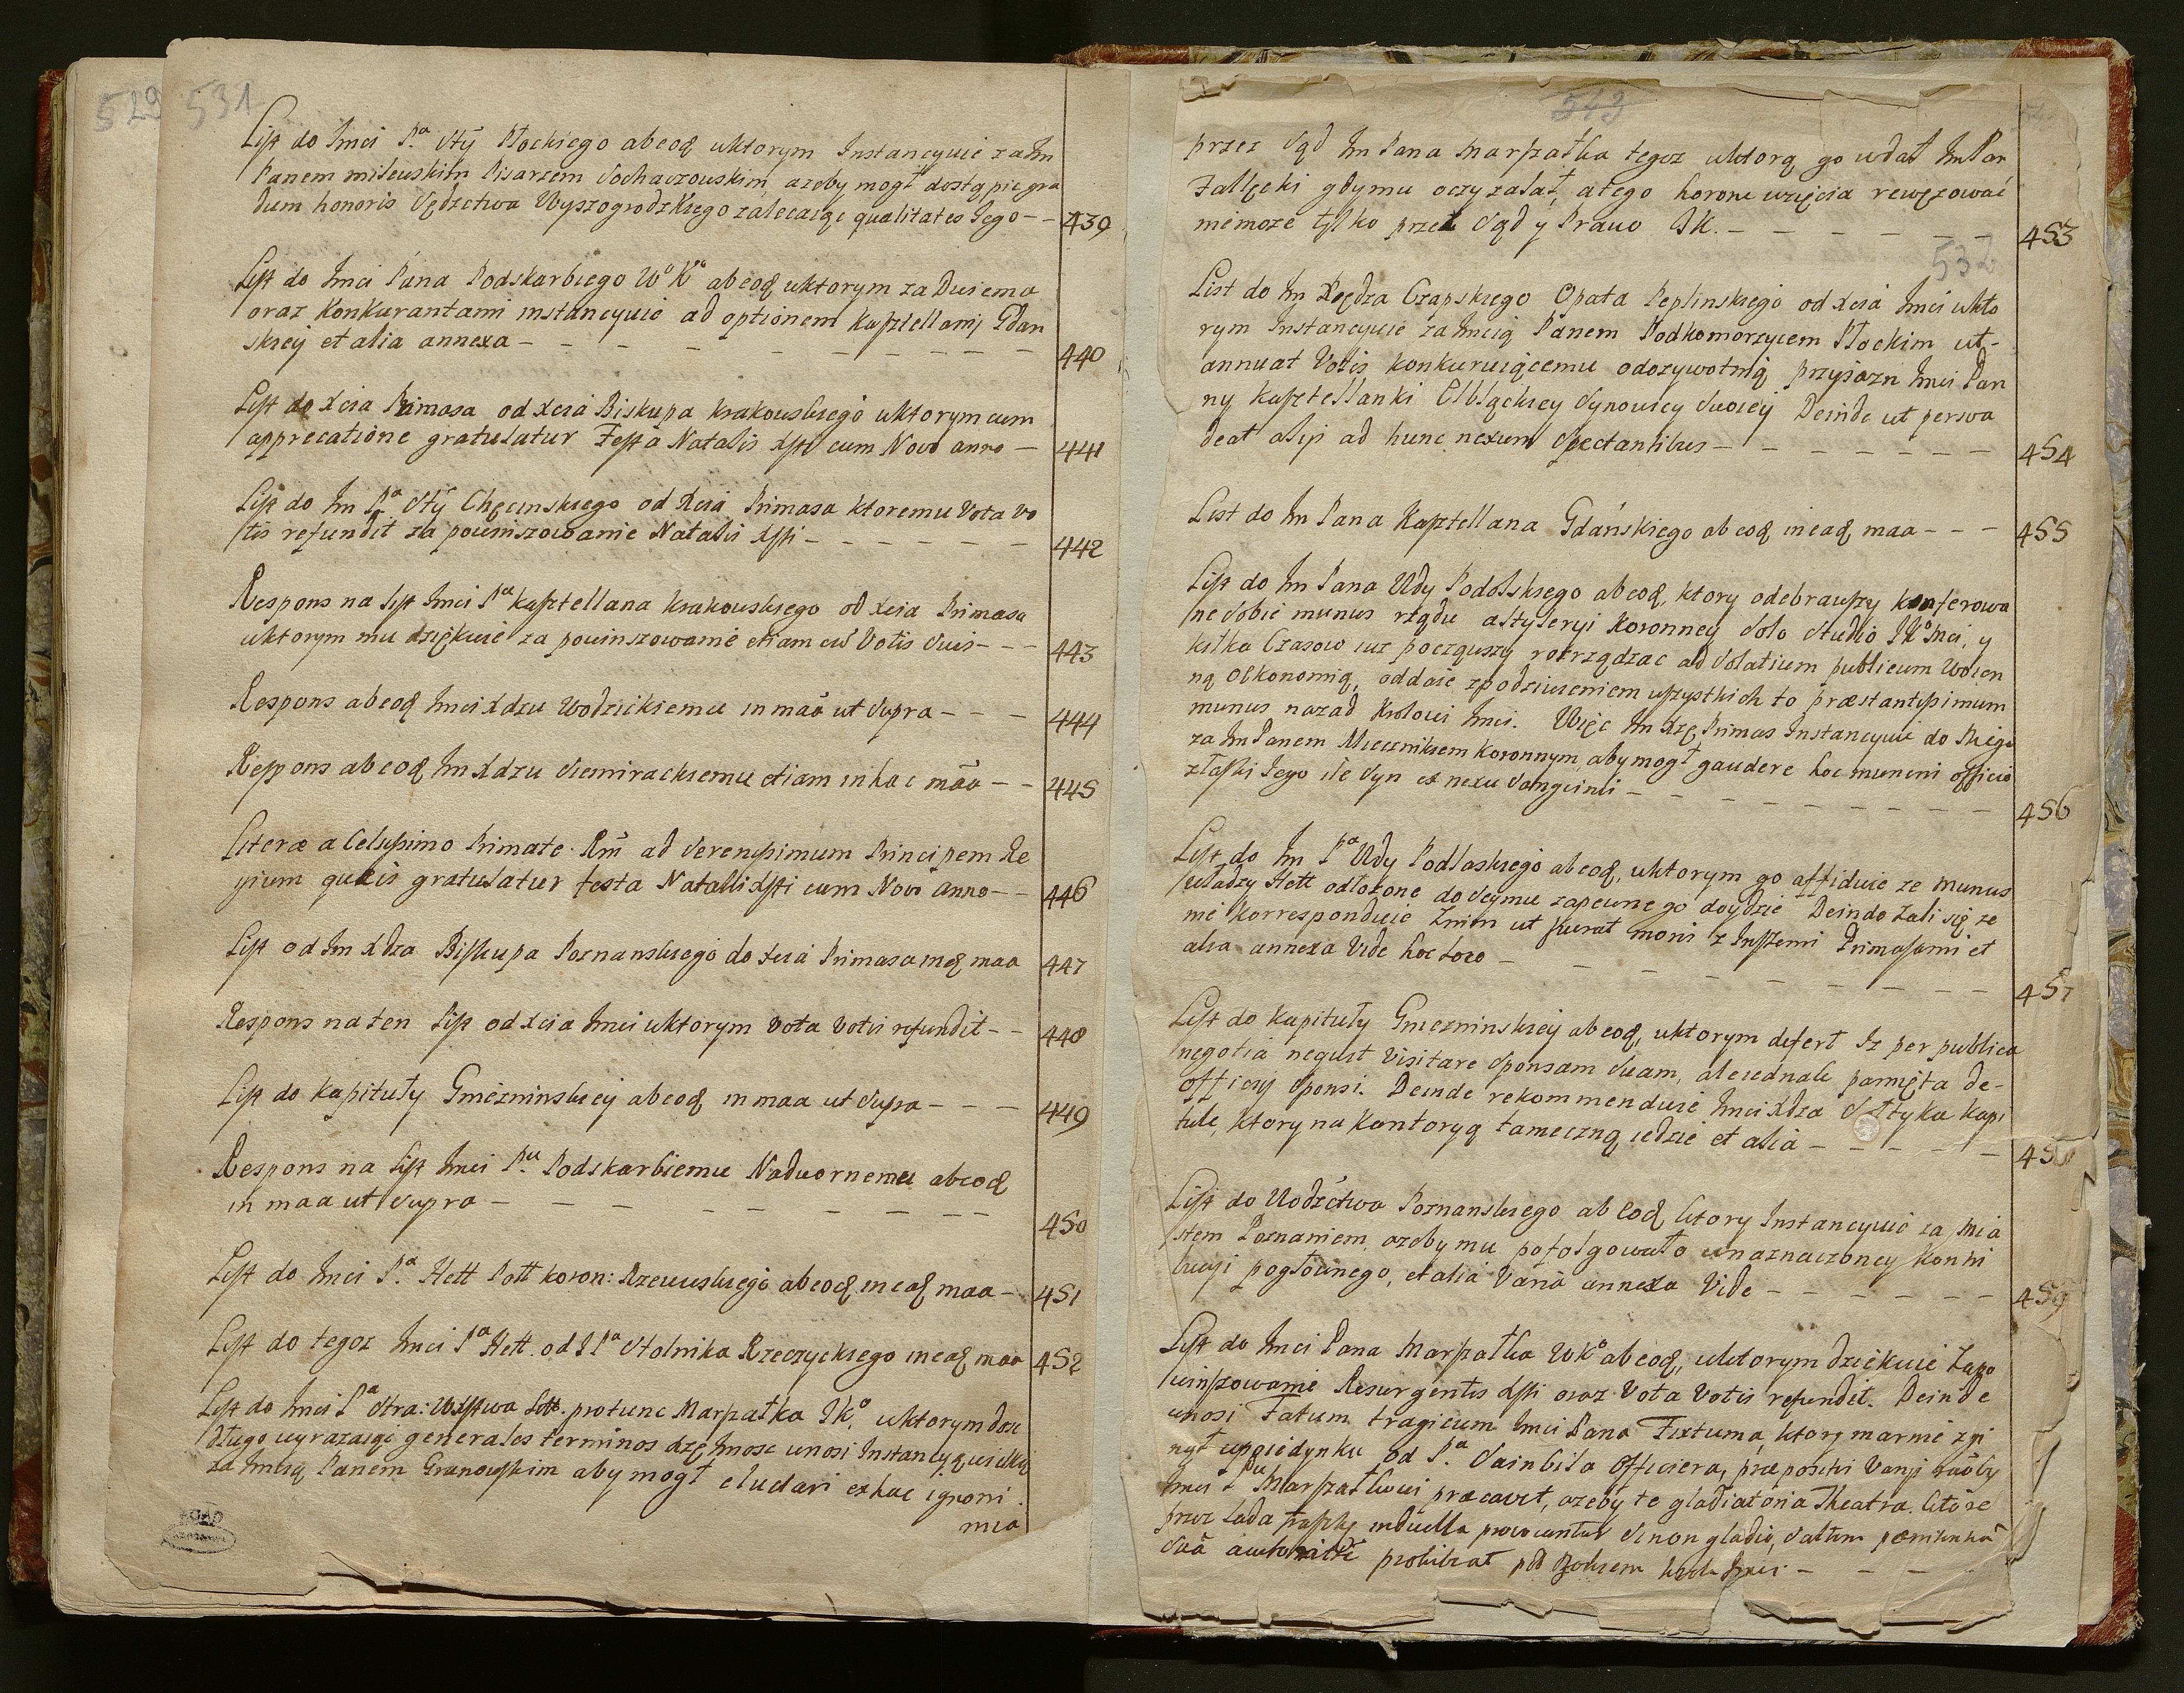 529 531
List do Imci Pª Stÿ Płockiego ab eoq̃ wktorym Instancyuie za Im
Panem milewskim Pisarzem Sochaczowskim, azeby mogł dostąpic gra
dum honoris Sędzctwa Wyszogrodzkiego zalecaiąc qualitates Iego - - 439
List do Imci Pana Podskarbiego Wº Kº ab eoq̃ wktorym za Dwiema
oraz Konkurantami instancyuie ad optionem Kasztellanÿ Gdan
skieÿ et alia annexa - - - - - - - - - - 440
List do Xcia Primasa od Xcia Biskupa krakowskiego wktorym cum
apprecatione gratulatur Festa Natalis Xsti cum Novo anno - 441
List do Im Pª Stÿ Chęcinskiego od Xcia Primasa ktoremu Vota vo
tis refundit za powinszowanie Natalis Xsti - - - - - - 442
Respons na list Imci Pª kasztellana krakowskiego od Xcia Primasa
wktorym mu dziękuie za powinszowanie etiam cũ Votis Suis - - - 443
Respons ab eoq̃ Imci Xdzu Wodzickiemu in mãa ut Supra - - - 444
Respons ab eoq̃ Im Xdzu Siemirackiemu etiam in hac mãa - - 445
Literæ a Celsissimo Primate Rm̃ ad Serenissimum Principem Re
gium queis gratulatur festa Natalis Xsti cum Novo anno - - 446
List od Im Xdza Biskupa Poznanskiego do Xcia Primasa in eaq̃ maa 447
Respons na ten list od Xcia Imci wktorym Vota Votis refundit - - 448
List do Kapituły Gnieznińskieÿ ab eoq̃ in maa ut Supra - - - 449
Respons na list Imci Pu. Podskarbiemu Nadwornemu ab eoq̃
in maa ut Supra - - - - - - - - - 450
List do Imci Pª. Hett Pott koron: Rzewuskiego ab eoq̃ in eaq̃ maa - 451
List do tegoz Imci Pª Hett. od I Pª Stolnika Rzeczyckiego in eaq̃ maa 452
List do Imci Pª Stra: Wº Xstwa Litt. pro tunc Marszałka I Kº. wktorym dosc
długo wyrazaiąc generales terminos dzę Imosc wnosi Instancyą
za Imcią Panem Granowskim aby mogł eludari ex hac ignomi
nia
543
przez Sąd Im Pana Marszałka tegoz wktorą go wdał Im Pan
Załęcki gdy mu oczy zalał, a tego honoru wzięcia rewęzować
niemoze tylko przez Sąd y Prawo IK. - - - - - - 453
532
List do Im Xiędza Czapskiego Opata Peplinskiego od Xcia Imci wkto
rym Instancyuie za Imcią Panem Podkomorzycem Płockim ut
annuat Votis konkuruiącemu o dozywotnią przyiazn Imci Pan
ny kasztellanki Elbląckiey Synowicy Swoieÿ Deinde ut persva
deat alys ad hunc nexum Spectantibus - - - - - - - 454
List do Im Pana Kasztellana Gdańskiego ab eoq̃ in eaq̃ maa - - - 455
List do Im Pana Wdy Podolskiego ab eoq̃, ktory odebrawszy konferowa
ne Sobie munus rządu artyleryi Koronney Solo Studio IKº Mci, y
kilka Czasow iuz począwszy rozrządzac ad Solatium publicum Wolen
ną Oekonomią, oddaie zpodziwieniem wszystkich to præstantissimum
munus nazad krolowi Imci. Więc Im Xżę Primas Instancyuie do Niego
za Im Panem Miecznikiem koronnym, aby mogł gaudere hoc munini officio
złaski Iego ile Syn ex nexu Sangvinis - - - - - - - - 456
List do Im Pª Wdy Podlaskiego ab eoq̃, wktorym go affiduie ze munus
władzy Hett odłozone do Seymu zapewne go doydzie Deinde Zali się ze
nie korresponduie Znim ut suerat moris z Inszemi Primasami et
alia annexa Vide hoc loco - - - - - - - - 457
List do Kapituły Gniezninskieÿ ab eoq̃, wktorym defert Iz per publica
negotia nequit visitare Sponsam Suam, ale iednak pamięta de
officÿ Sponsi. Deinde rekommenduie Imci Xdza Sołtyka Kapi
tule, ktory na Kantoryą tameczną iedzie et alia - - - - -
List do Wodzctwa Poznanskiego ab eoq̃ ktory Instancyuie za Mia
stem Poznaniem, azeby mu pofolgowało wnaznaczoney kontri
bucyi pogłownego, et alia Varia annexa Vide - - - - - - 459
List do Imci Pana Marszałka WKº ab eoq̃, wktorym dziękuie Zapo
winszowanie Resurgentis Xsti oraz Vota Votis refundit. Deinde
wnosi Fatum tragicum Imci Pana Fixtuma, ktory marnie zgi
nął wpoiedynku od Pª. Sainbila Officiera, præpositis Varÿs
Imci Pu Marszałkowi præcavet, azeby te gladiatoria Theatra. ktore
przez lada fraszkę induella provocantur Si non gladio, Saltim
Sua authoritate prohibeat pod Bokiem Imci - - - -